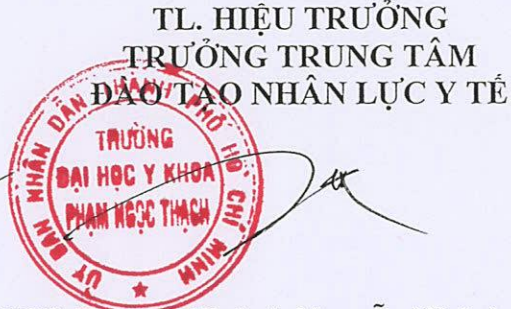 TL. HIỆU TRƯỞNG
TRƯỞNG TRUNG TÂM
ĐÀO TẠO NHÂN LỰC Y TẾ
ỦY BAN NHÂN DÂN THÀNH PHỐ HỒ CHÍ MINH
TRƯỜNG
ĐẠI HỌC Y KHOA
PHẠM NGỌC THẠCH